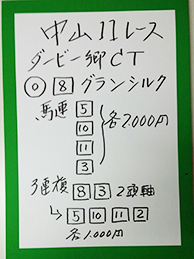 中山11レース
ダービー郷CT
◎ 8 グランシルク
馬連 5
10
11
3
各2,000円
3連複 8 3 2頭軸
↳ 5 10 11 2
各1,000円